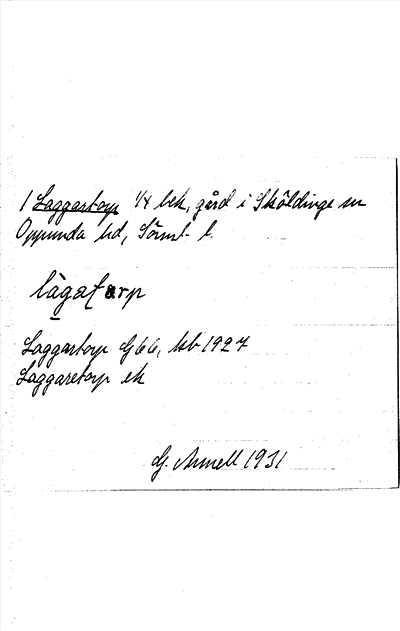 1 Laggartorp 1/4 bek, gård i Sköldinge sn
Oppunda hd, Söml. l.
làgatorp
Laggartorp GJ66, kb 1927
Laggaretorp ek
G. Annell 1931